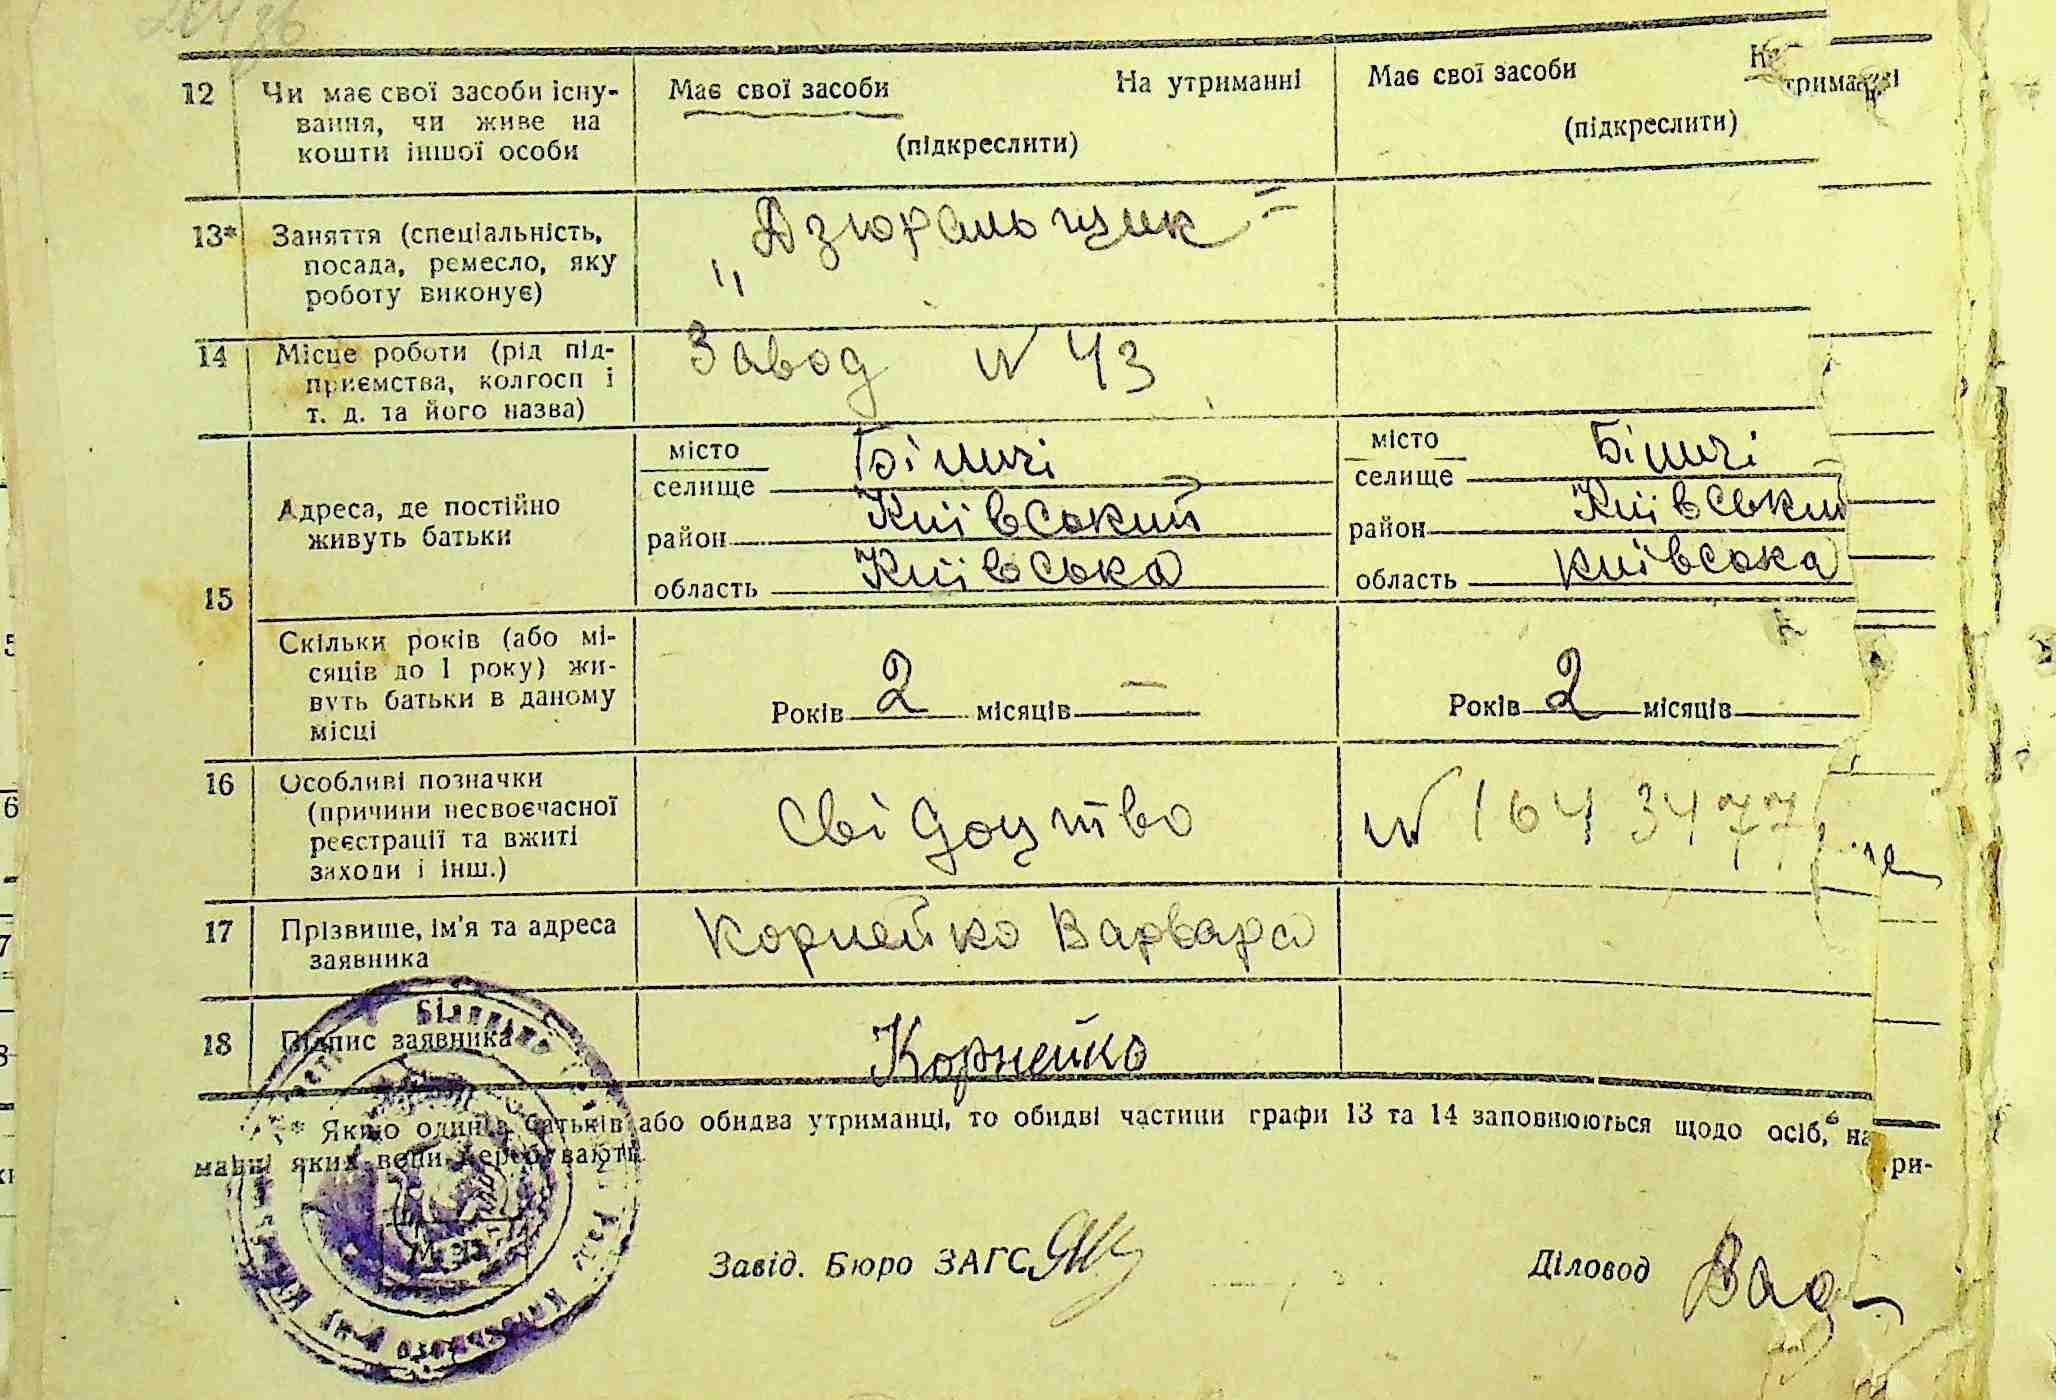 12 Чи має свої засоби існу-
вання, чи живе на
кошти іншої особи
Має свої засоби На утриманні
(підкреслити)
Має свої засоби
(підкреслити)
13* Заняття (спеціальність,
посада, ремесло, яку
роботу виконує)
„Дзюральщик"
14 Місце роботи (рід під-
приємства, колгосп і
т. д. та його назва)
Завод № 43
15 Адреса, де постійно
живуть батьки
місто
селище Біличі
район Київський
область Київська
місто
селище Біличі
район Київський
область київська
Скільки років (або мі-
сяців до 1 року) жи-
вуть батьки в даному
місці
Років 2 місяців —
Років 2 місяців
16 Особливі позначки
(причини несвоєчасної
реєстрації та вжиті
заходи і інш.)
Свідоцтво № 1643477
17 Прізвище, ім'я та адреса
заявника
Корнейко Варвара
18 Підпис заявника
Корнейко
* Якщо один з батьків або обидва утриманці, то обидві частини графи 13 та 14 заповнюються щодо осіб, на
ри-
манні яких вони перебувають.
Завід. Бюро ЗАГС
Діловод